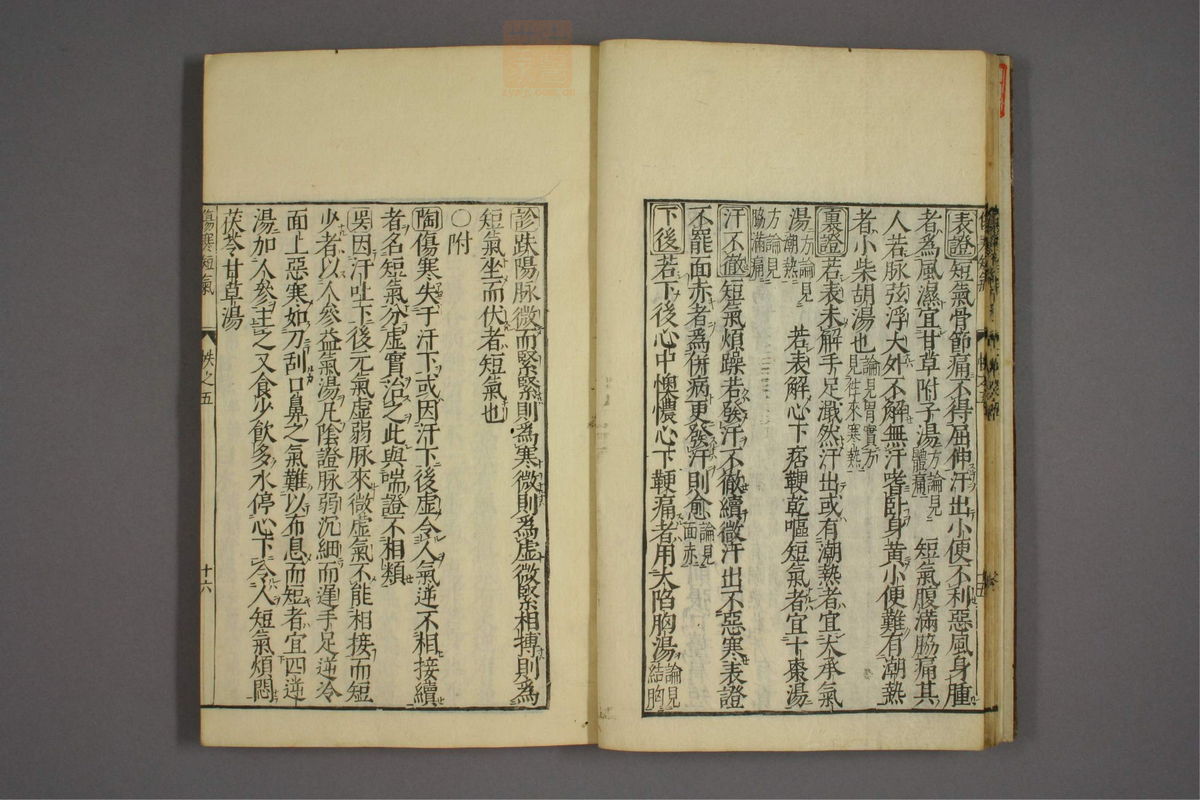 表證短氣骨節痛不得屈伸汗出小便不利惡風身腫
者為風濕宜甘草附子湯方論見體痛 短氣腹滿脇痛其
人若脉弦浮大外不解無汗嗜卧身黄小便難有潮熱
者小柴胡湯也論見胃實方見往來寒熱
裏證若表未解手足濈然汗出或有潮熱者宜大承氣
湯方論見潮熱 若表解心下痞鞕乾嘔短氣者宜十棗湯
方論見脇滿痛
汗不徹短氣煩躁若發汗不徹續微汗出不惡寒表證
不罷面赤者為併病更發汗則愈論見面赤
下後若下後心中懊憹心下鞕痛者用大陷胸湯論見結胸
診趺陽脉微而緊緊則為寒微則為虛微緊相搏則為
短氣坐而伏者短氣也
〇附
陶傷寒失于汗下或因汗下後虛令人氣逆不相接續
者名短氣分虛實治之此與喘證不相類
吳因汗吐下後元氣虛弱脉來微虛氣不能相接而短
少者以人參益氣湯凡陰證脉弱沉細而遲手足逆冷
面上惡寒如刀刮口鼻之氣難以布息而短者宜四逆
湯加人參主之又食少飲多水停心下令人短氣煩悶
茯苓甘草湯
傷寒短氣
帙之五
十六